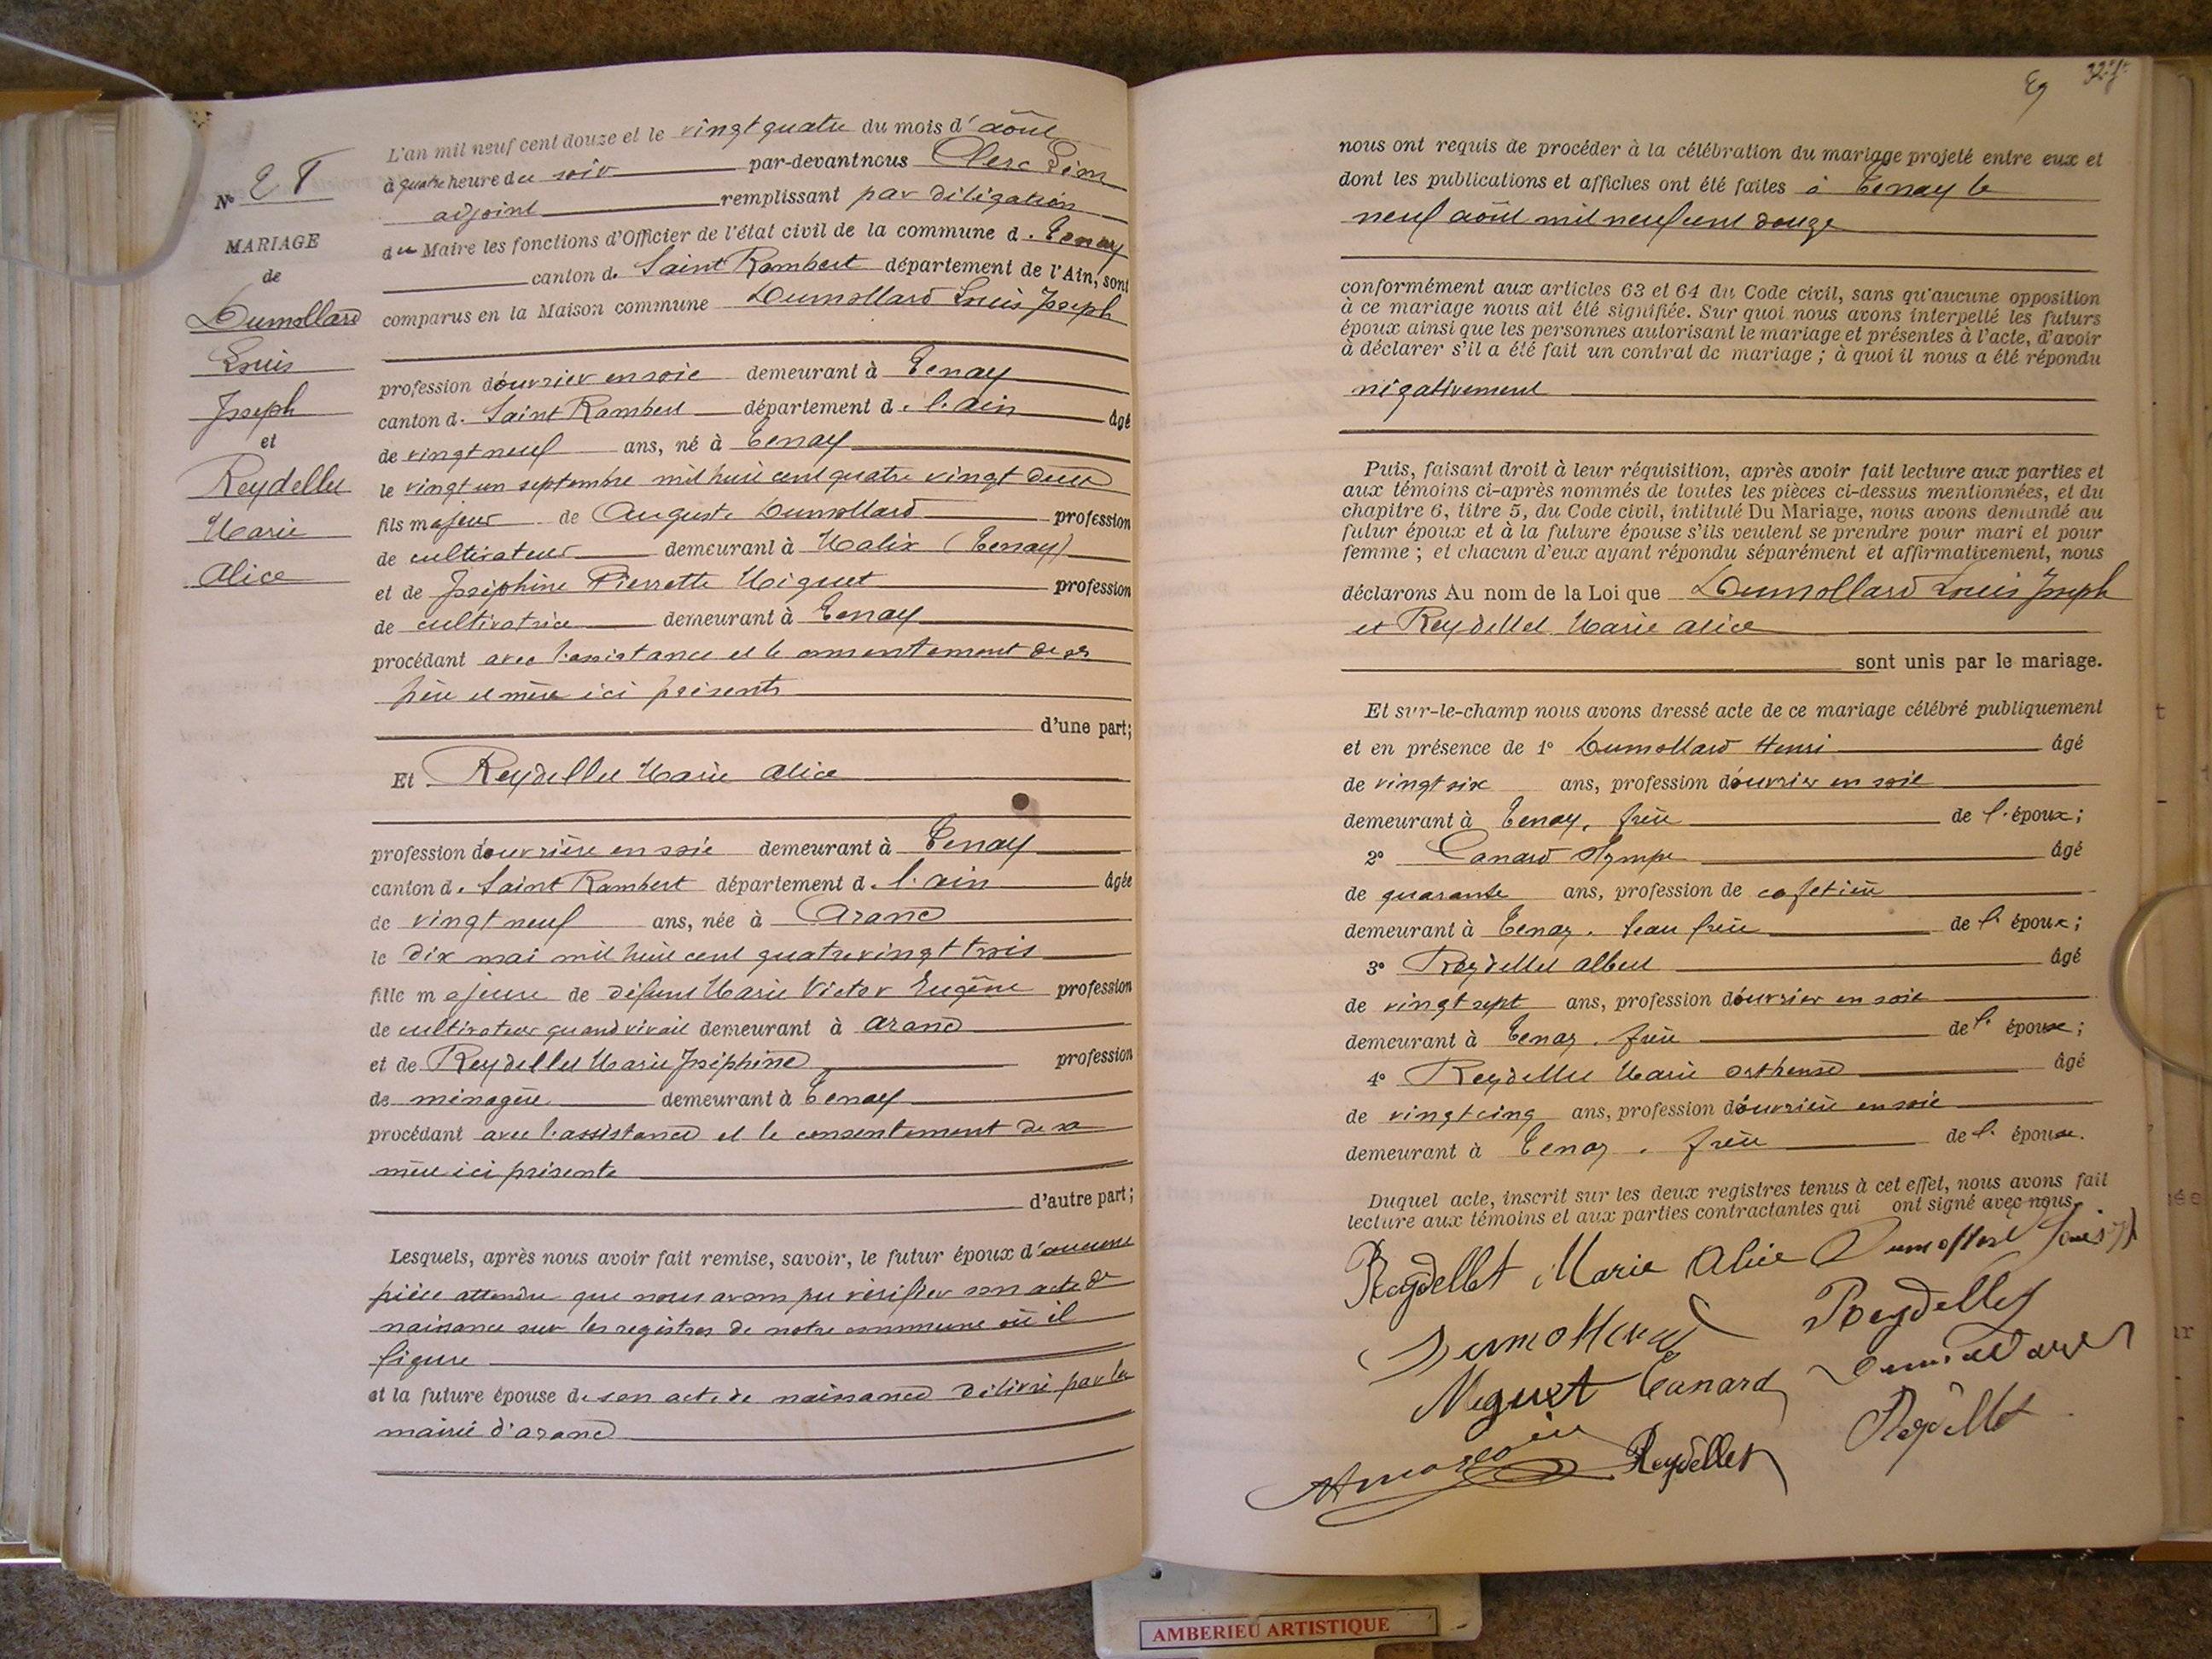 L'an mil neuf cent douze et le vingt quatre du mois d'août
à quatre heure du soir par-devant nous Clerc
adjoint remplissant par déligation
du Maire les fonctions d'Officier de l'état civil de la commune d. Tenay
canton d. Saint Rambert département de l'Ain, sont
comparus en la Maison commune Dumollard Louis Joseph
profession d'ouvrier en soie demeurant à Tenay
canton d. Saint Rambert département d. l'ain âgé
de vingt neuf ans, né à Tenay
le vingt un septembre mil huit cent quatre vingt deux
fils majeur de Auguste Dumollard profession
de cultivateur demeurant à Malix (Tenay)
et de Joséphine Pierrette Miguet profession
de cultivatrice demeurant à Tenay
procédant avec l'assistance et le consentement de ses
père et mère ici présents
d'une part;
Et Reydellet Marie Alice
profession d'ouvrière en soie demeurant à Tenay
canton d. Saint Rambert département d. l'ain âgée
de vingt neuf ans, née à Aranc
le dix mai mil huit cent quatre vingt trois
fille majeure de défunt Marie Victor Eugène profession
de cultivateur quand vivait demeurant à Aranc
et de Reydellet Marie Joséphine profession
de ménagère demeurant à Tenay
procédant avec l'assistance et le consentement de sa
mère ici présente
d'autre part;
Lesquels, après nous avoir fait remise, savoir, le futur époux d'aucune
pièce attendu que nous avons pu vérifier son acte de
naissance sur les registres de notre commune où il
figure
et la future épouse de son acte de naissance délivré par la
mairie d'aranc
N° 28
MARIAGE
de
Dumollard
Louis
Joseph
et
Reydellet
Marie
Alice
nous ont requis de procéder à la célébration du mariage projeté entre eux et
dont les publications et affiches ont été faites à Tenay le
neuf août mil neuf cent douze
conformément aux articles 63 et 64 du Code civil, sans qu'aucune opposition
à ce mariage nous ait été signifiée. Sur quoi nous avons interpellé les futurs
époux ainsi que les personnes autorisant le mariage et présentes à l'acte, d'avoir
à déclarer s'il a été fait un contrat de mariage ; à quoi il nous a été répondu
négativement
Puis, faisant droit à leur réquisition, après avoir fait lecture aux parties et
aux témoins ci-après nommés de toutes les pièces ci-dessus mentionnées, et du
chapitre 6, titre 5, du Code civil, intitulé Du Mariage, nous avons demandé au
futur époux et à la future épouse s'ils veulent se prendre pour mari et pour
femme ; et chacun d'eux ayant répondu séparément et affirmativement, nous
déclarons Au nom de la Loi que Dumollard Louis Joseph
et Reydellet Marie Alice
sont unis par le mariage.
Et sur-le-champ nous avons dressé acte de ce mariage célébré publiquement
et en présence de 1° Dumollard Henri âgé
de vingt six ans, profession d'ouvrier en soie
demeurant à Tenay, frère de l'époux;
2° Canard Olympe âgé
de quarante ans, profession de cafetière
demeurant à Tenay. beau frère de l'époux;
3° Reydellet Albert âgé
de vingt sept ans, profession d'ouvrier en soie
demeurant à Tenay. frère de l'épouse;
4° Reydellet Marie Orthense âgé
de vingt cinq ans, profession d'ouvrière en soie
demeurant à Tenay. frère de l'épouse.
Duquel acte, inscrit sur les deux registres tenus à cet effet, nous avons fait
lecture aux témoins et aux parties contractantes qui ont signé avec nous.
Reydellet Marie Alice Dumollard Louis
Reydellet
Miguet Canard
Reydellet Reydellet
AMBERIEU ARTISTIQUE